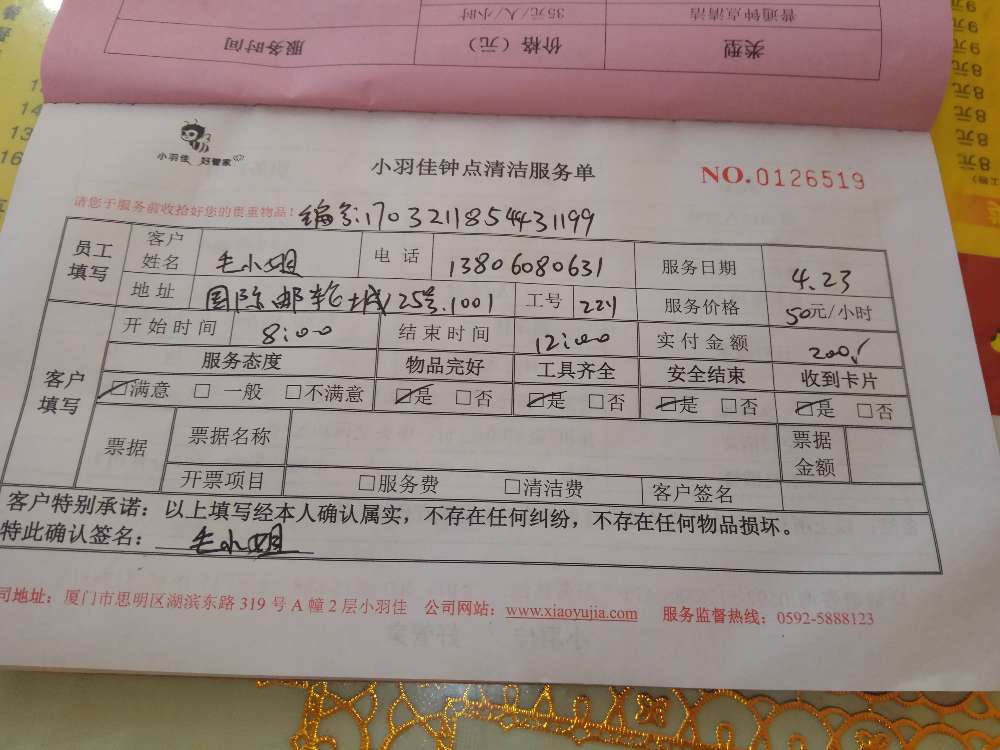 普通钟点清洁 35元/人/小时
类型 价格（元） 服务时间
小羽佳 好管家
小羽佳钟点清洁服务单
NO.0126519
请您于服务前收拾好您的贵重物品！
编号:17032118544431199
员工填写
客户姓名 毛小姐 电话 13806080631 服务日期 4.23
地址 国际邮轮城125号.1001 工号 224 服务价格 50元/小时
客户填写
开始时间 8:00 结束时间 12:00 实付金额 200√
服务态度 物品完好 工具齐全 安全结束 收到卡片
☑满意 □一般 □不满意 ☑是 □否 ☑是 □否 ☑是 □否 ☑是 □否
票据 票据名称 票据金额
开票项目 □服务费 □清洁费 客户签名
客户特别承诺：以上填写经本人确认属实，不存在任何纠纷，不存在任何物品损坏。
特此确认签名： 毛小姐
司地址：厦门市思明区湖滨东路 319 号 A 幢 2 层小羽佳 公司网站：www.xiaoyujia.com 服务监督热线：0592-5888123